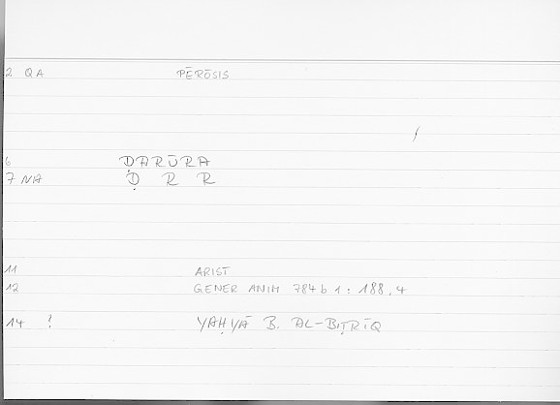 2 QA PĒRŌSIS
6 ḌARŪRA
7 NA Ḍ R R
11 ARIST
12 GENER ANIM 784 b 1 : 188,4
14 ! YAḤYĀ B. AL-BIṬRĪQ